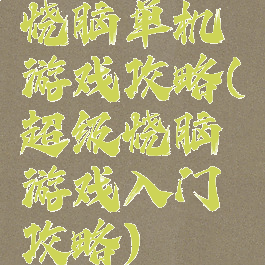 烧脑单机
游戏攻略(
超级烧脑
游戏入门
攻略)